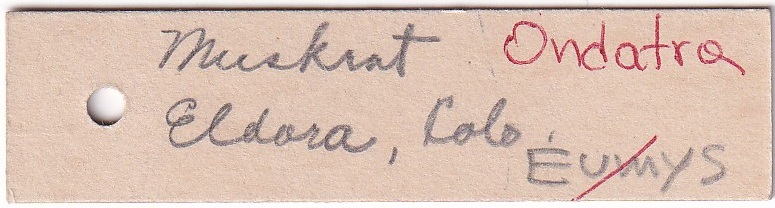 Muskrat Ondatra
Eldora, Colo.
Eumys